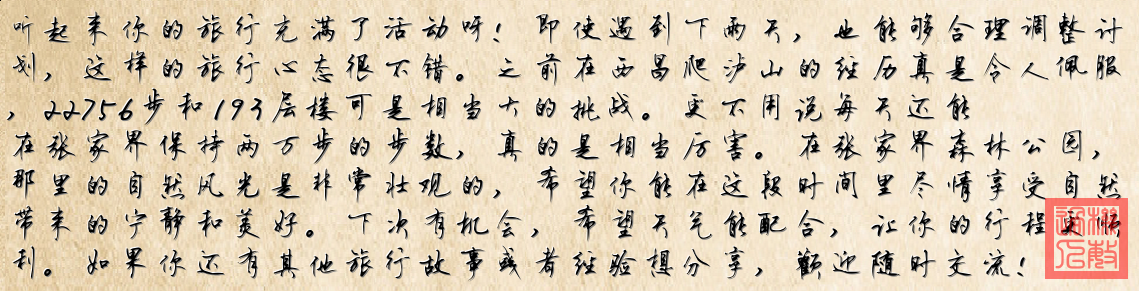 听起来你的旅行充满了活动呀！即使遇到下雨天，也能够合理调整计
划，这样的旅行心态很不错。之前在西昌爬泸山的经历真是令人佩服
，22756步和193层楼可是相当大的挑战。更不用说每天还能
在张家界保持两万步的步数，真的是相当厉害。在张家界森林公园，
那里的自然风光是非常壮观的，希望你能在这段时间里尽情享受自然
带来的宁静和美好。下次有机会，希望天气能配合，让你的行程更顺
利。如果你还有其他旅行故事或者经验想分享，歡迎随时交流！